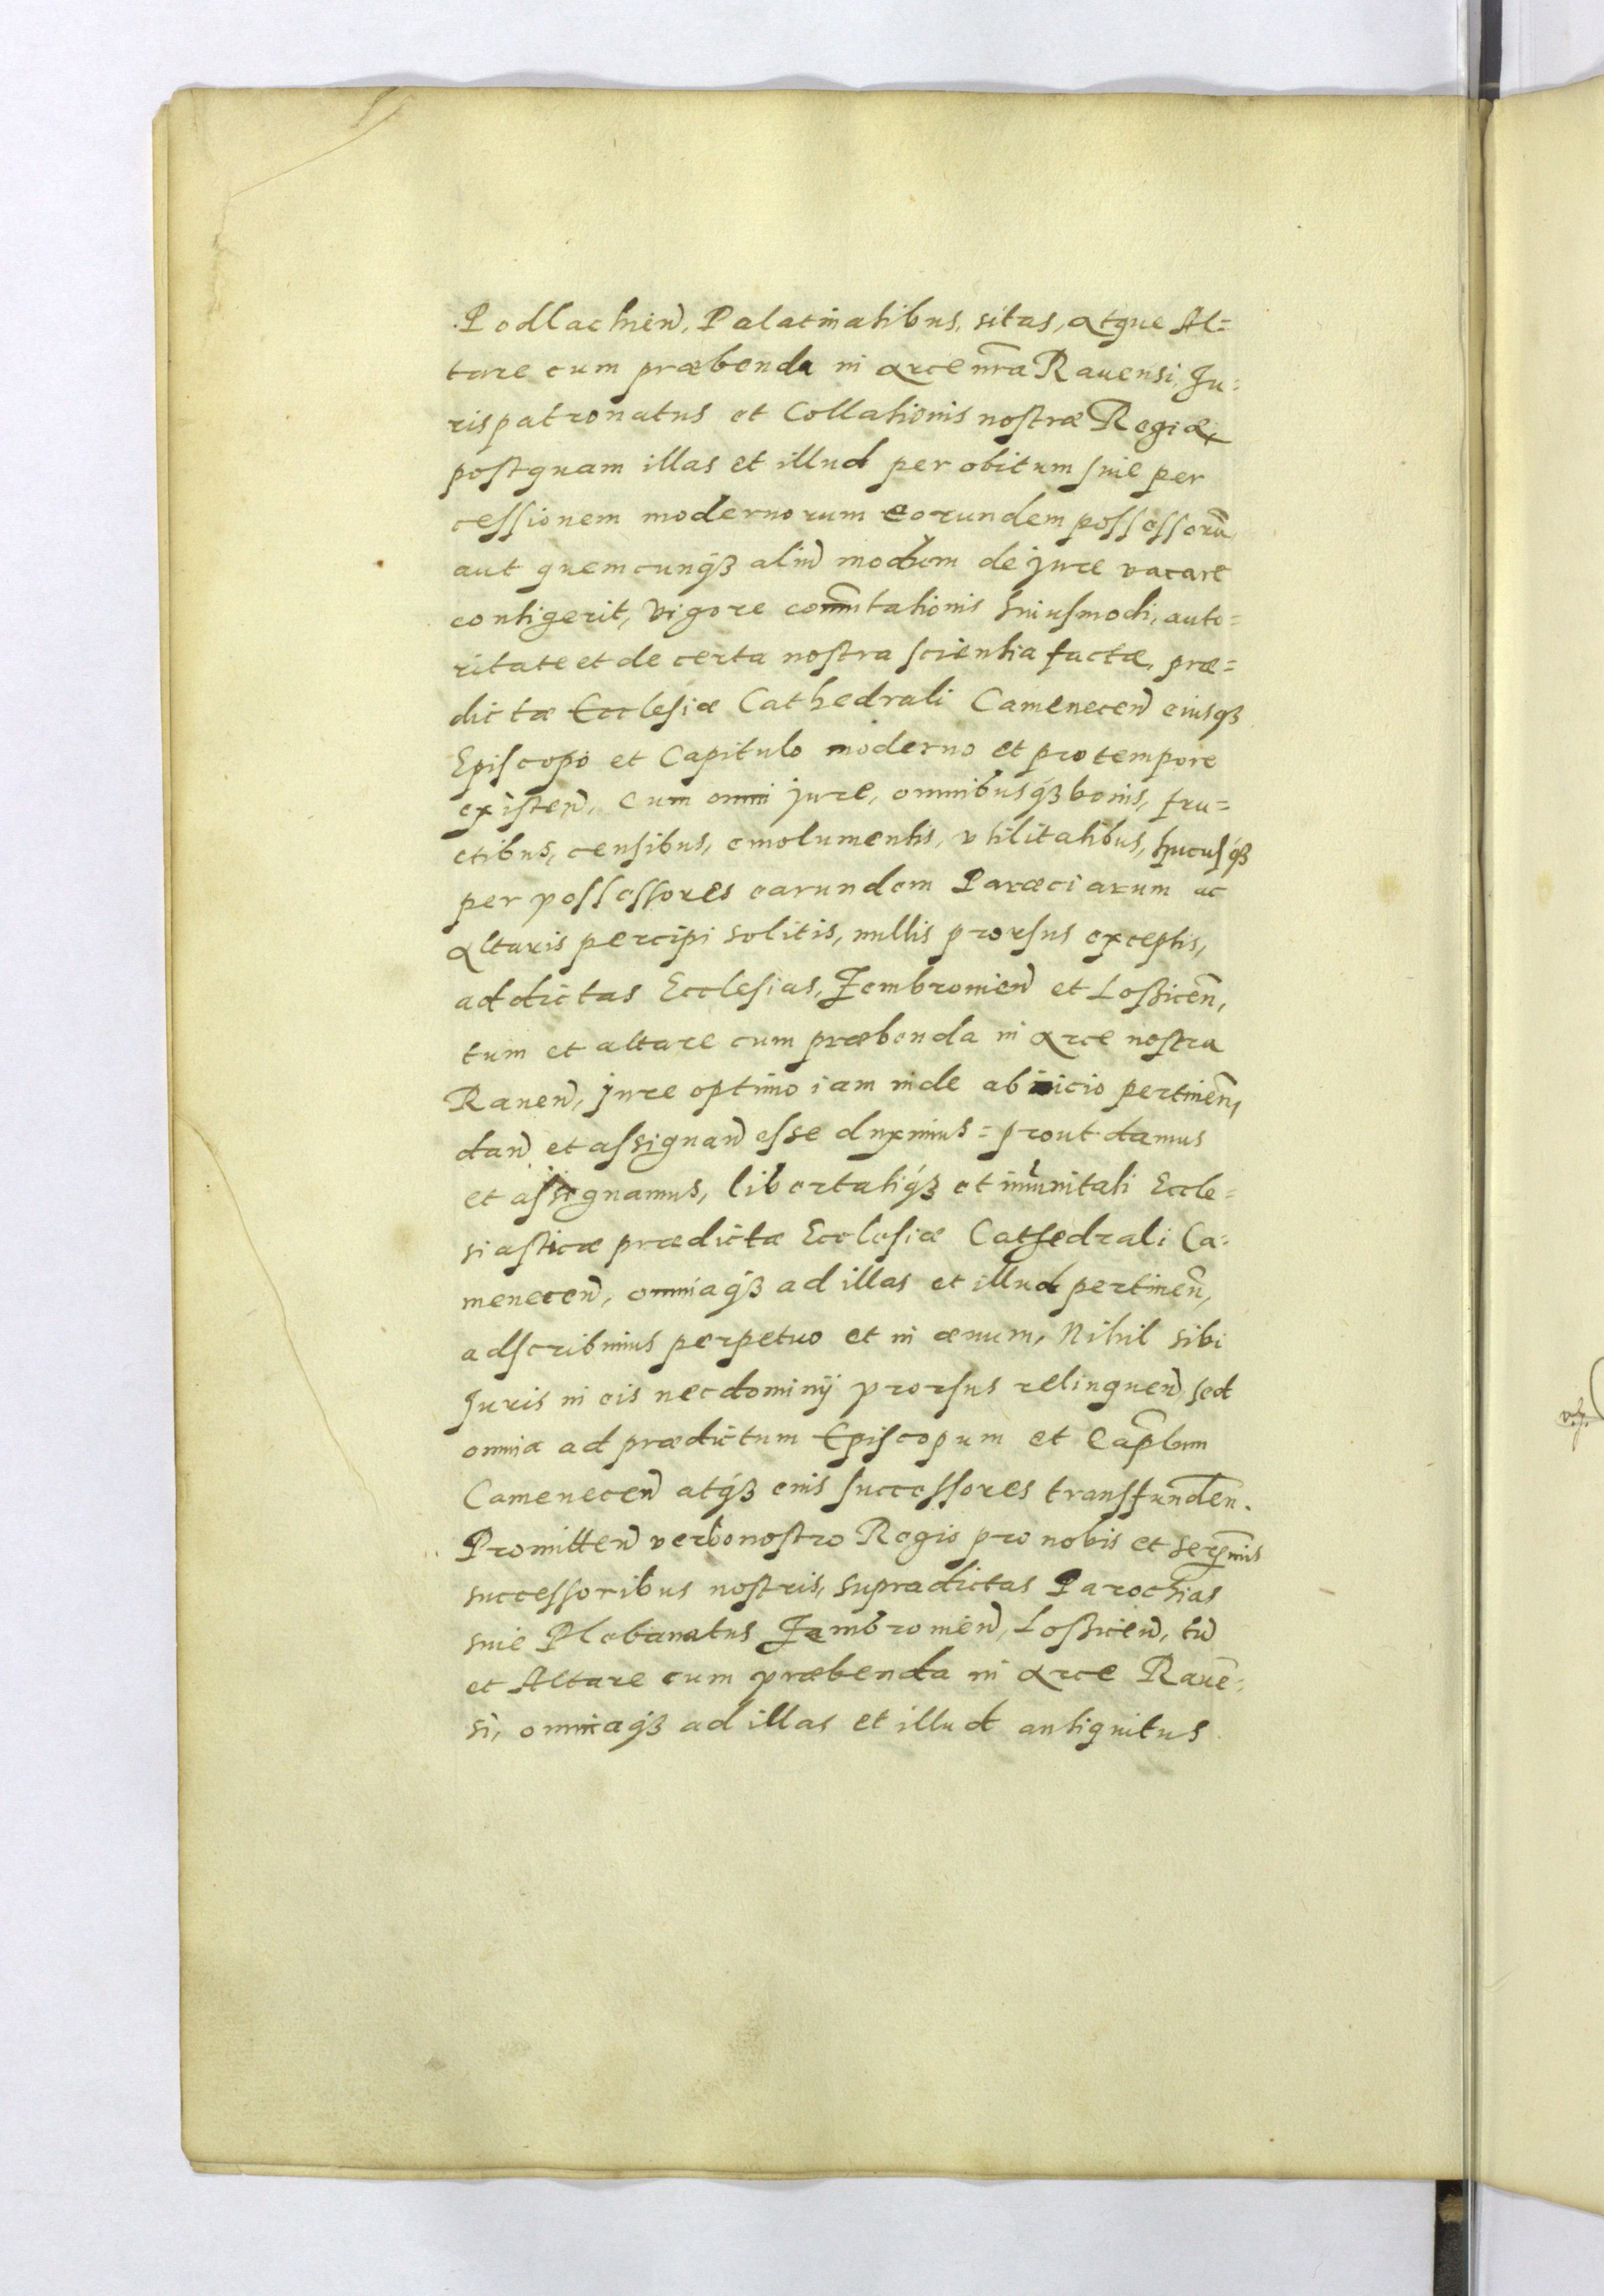 Podlachien̄, Palatinatibus, sitas, atque Al=
tare cum præbenda in arce nr̄a Rauensi, Ju=
rispatronatus et Collationis nostræ Regiæ,
postquam illas et illud per obitum siue per
cessionem modernorum eorundem possessorū
aut quemcunqꝫ aliū modum de jure vacare
contigerit, vigore com̄utationis huiusmodi, auto=
ritate et de certa nostra scientia factæ, præ=
dictæ Ecclesiæ Cathedrali Camenecen̄ eiusqꝫ
Episcopo et Capitulo moderno et pro tempore
existen̄, cum omni jure, omnibusqꝫ bonis, fru=
ctibus, censibus, emolumentis, vtilitatibus, hucusqꝫ
per possessores earundem Paræciarum ac
altaris percipi solitis, nullis prorsus exceptis,
ad dictas Ecclesias, Jembronien̄ et Loßicen̄,
tum et altare cum præbenda in arce nostra
Rauen̄, jure optimo iam inde ab inicio pertinen̄,
dan̄ et assignan̄ esse duximus = prout damus
et assignamus, libertatiqꝫ et im̄unitati Eccle=
siasticæ prædictæ Ecclesiæ Cathedrali Ca=
menecen̄, omniaqꝫ ad illas et illud pertinen̄,
adscribimus perpetuo et in æuum, Nihil sibi
Juris in eis nec dominij prorsus relinquen̄ sed
omnia ad prædictum Episcopum et Cap̄lum
Camenecen̄ atqꝫ eius successores transfunden̄.
Promitten̄ verbo nostro Regio pro nobis et Ser̄mis
successoribus nostris, supradictas Parochias
siue Plebanatus Jembronien̄, Loßicen̄, tū
et Altare cum præbenda in arce Rauē=
si, omniaqꝫ ad illas et illud antiquitus